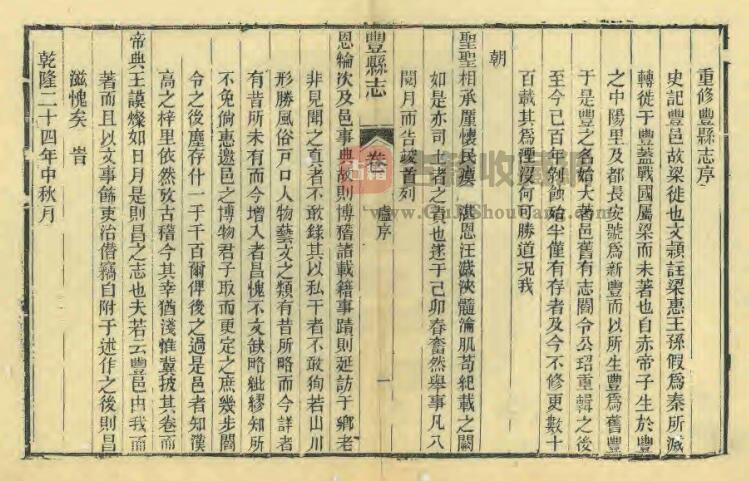 重修豐縣志序
史記豐邑故梁徙也文潁註梁惠王孫假為秦所滅
轉徙于豐蓋戰國屬梁而未著也自赤帝子生於豐
之中陽里及都長安號為新豐而以所生豐為舊豐
于是豐之名始大著邑舊有志閻令公玿重輯之後
至今已百年剝蝕殆半僅有存者及今不修更數十
百載其為湮沒何可勝道況我
朝
聖聖相承厪懷民瘼湛恩汪濊浹髓淪肌苟紀載之闕
如是亦司土者之責也遂于己卯春奮然舉事凡八
閱月而告竣首列
豐縣志
卷
盧序
一
恩綸次及邑事典故則博稽諸載籍事蹟則延訪于鄉老
非見聞之真者不敢錄其以私干者不敢狥若山川
形勝風俗戸口人物藝文之類有昔所略而今詳者
有昔所未有而今增入者昌愧不文缺略紕繆知所
不免倘惠邀邑之博物君子取而更定之庶幾步閻
令之後塵存什一于千百爾俾後之過是邑者知漢
高之梓里依然攷古稽今其幸猶淺惟冀披其卷而
帝典王謨燦如日月是則昌之志也夫若云豐邑由我而
著而且以文事餙吏治僭竊自附于述作之後則昌
滋愧矣 旹
乾隆二十四年中秋月
古籍收藏網
www.GuJiShouCang.com